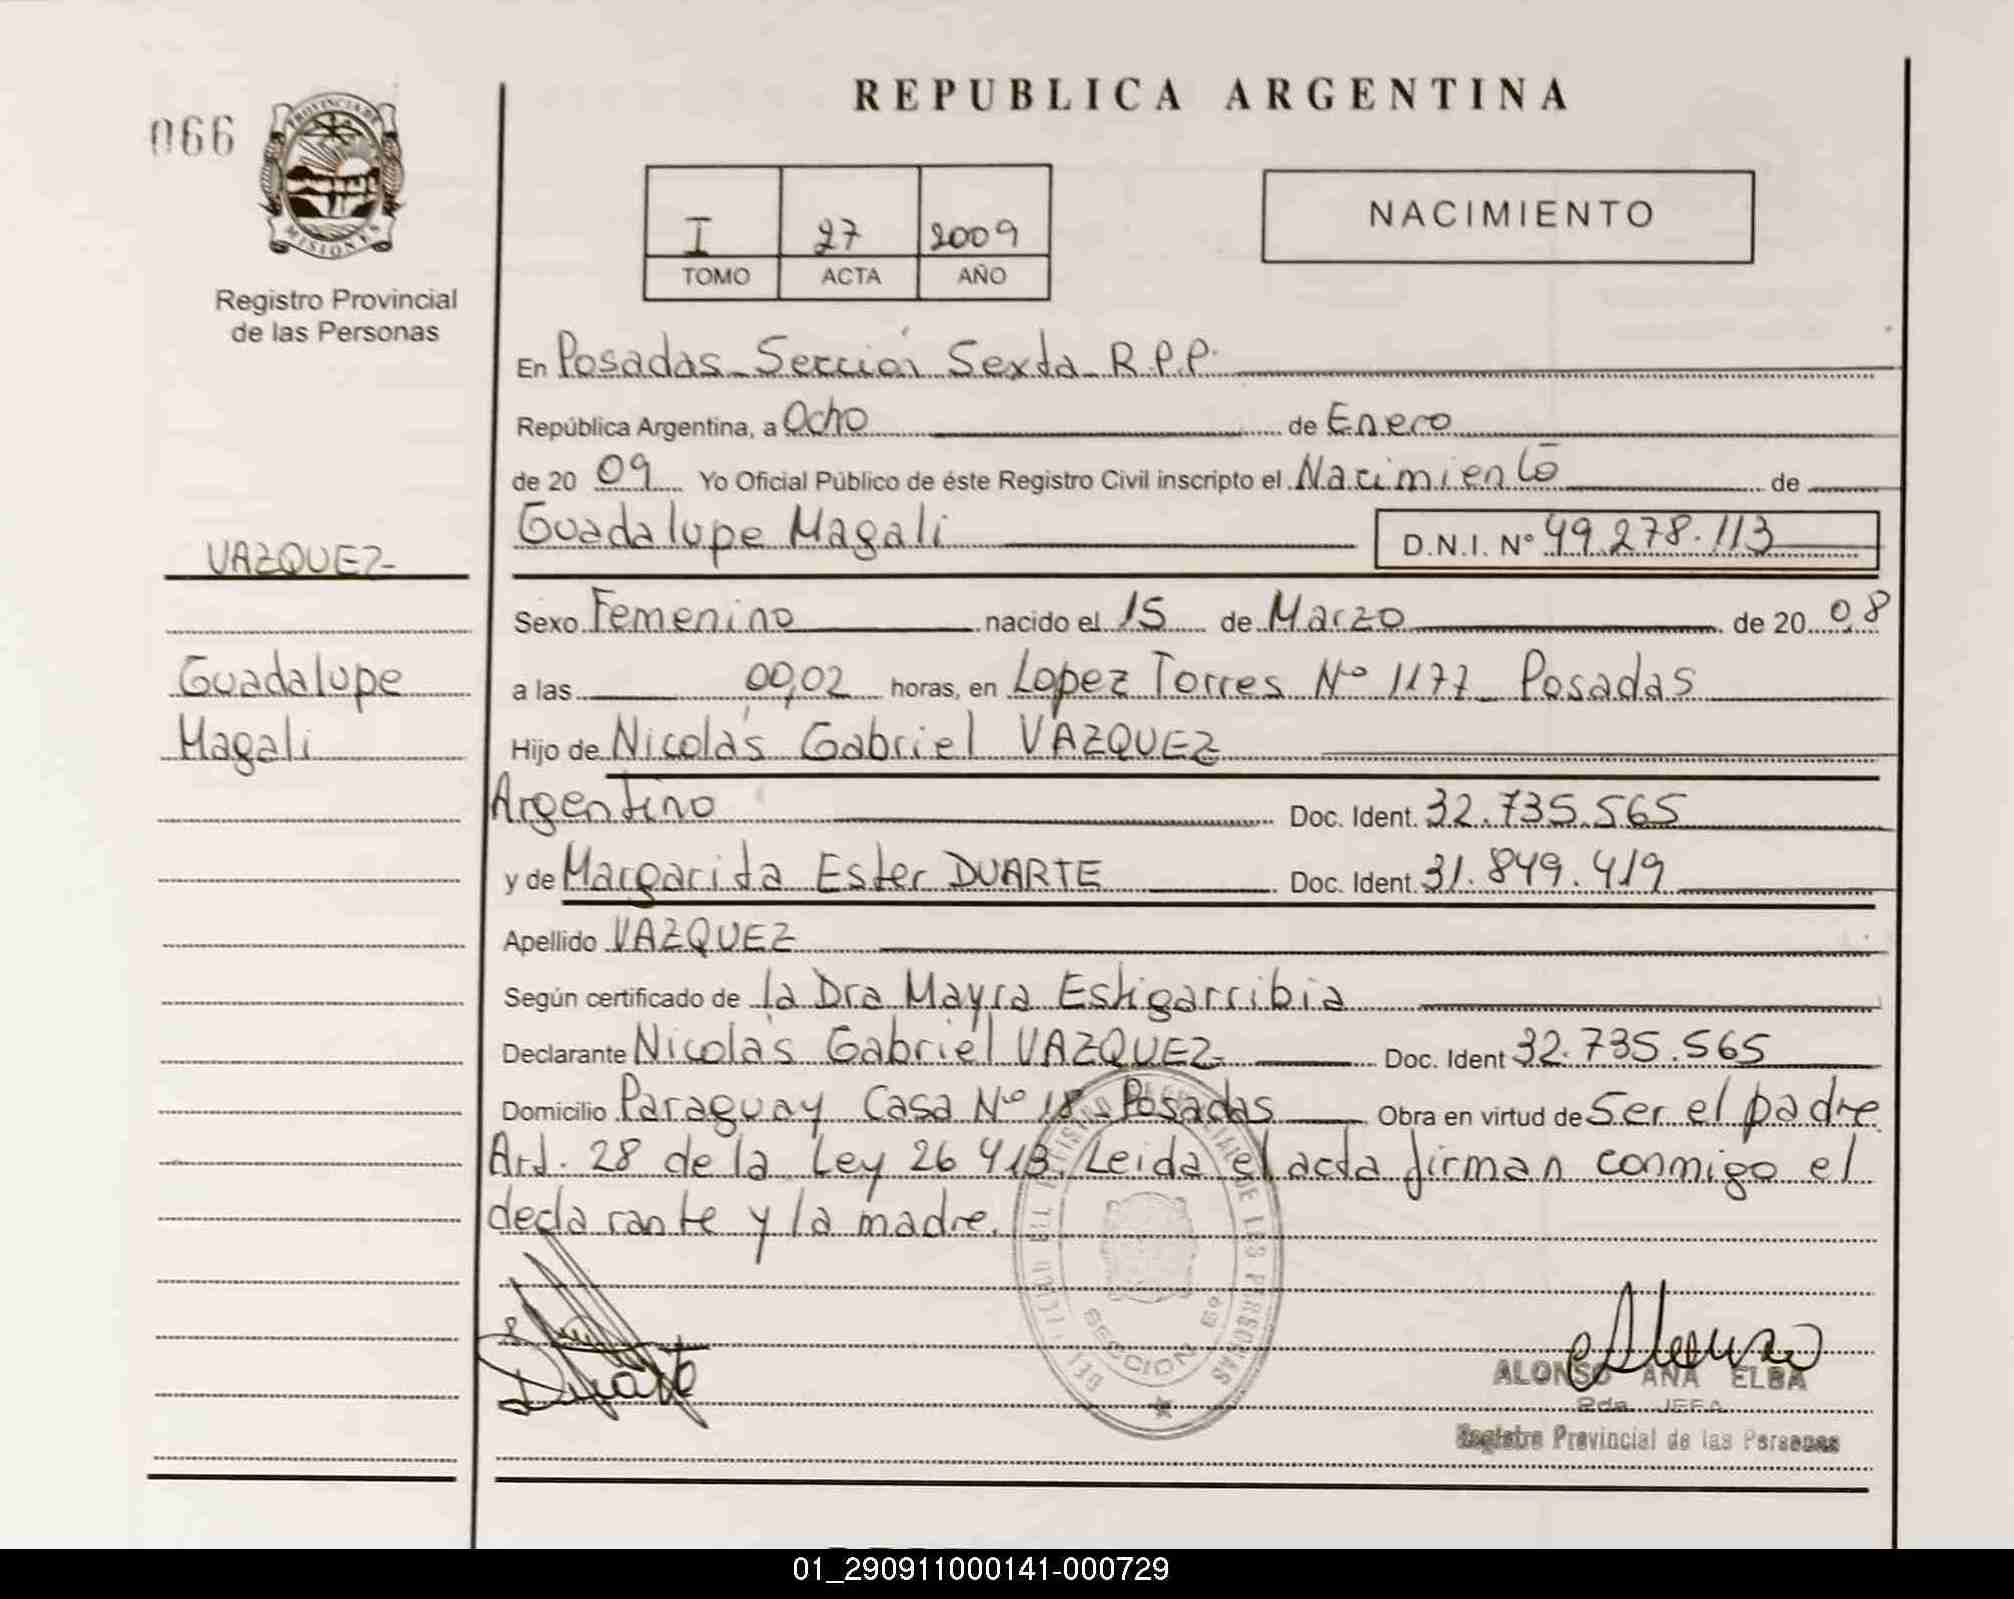 066
PROVINCIA DE
MISIONES
Registro Provincial
de las Personas
REPUBLICA ARGENTINA
I 27 2009
TOMO ACTA AÑO
NACIMIENTO
En Posadas Sección Sexta R.P.P.
República Argentina, a Ocho de Enero
de 20 09 Yo Oficial Público de éste Registro Civil inscripto el Nacimiento de
Guadalupe Magali D.N.I. Nº 49.278.113
VAZQUEZ
Sexo Femenino nacido el 15 de Marzo de 20 08
Guadalupe
a las 00,02 horas, en Lopez Torres Nº 1177 Posadas
Magali
Hijo de Nicolás Gabriel VAZQUEZ
Argentino Doc. Ident. 32.735.565
y de Margarita Ester DUARTE Doc. Ident. 31.849.419
Apellido VAZQUEZ
Según certificado de la Dra Mayra Estigarribia
Declarante Nicolás Gabriel VAZQUEZ Doc. Ident 32.735.565
Domicilio Paraguay Casa Nº 18 - Posadas Obra en virtud de Ser el padre
Art. 28 de la Ley 26 413. Leida el acta firman conmigo el
declarante y la madre.
SECCION 6ª
Duarte
ALONSO ANA ELBA
2da. JEFA
Registro Provincial de las Personas
01_290911000141-000729